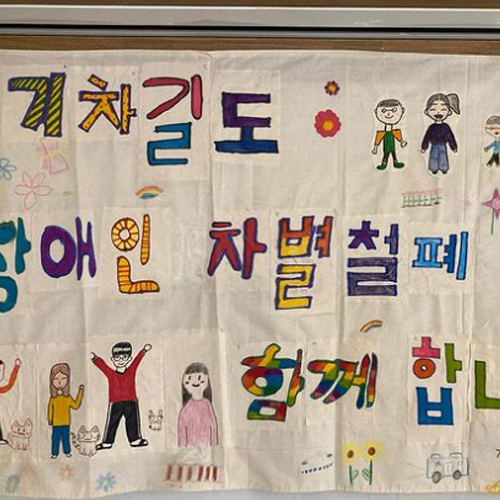 기차길도
장애인 차별철폐
함께 합니